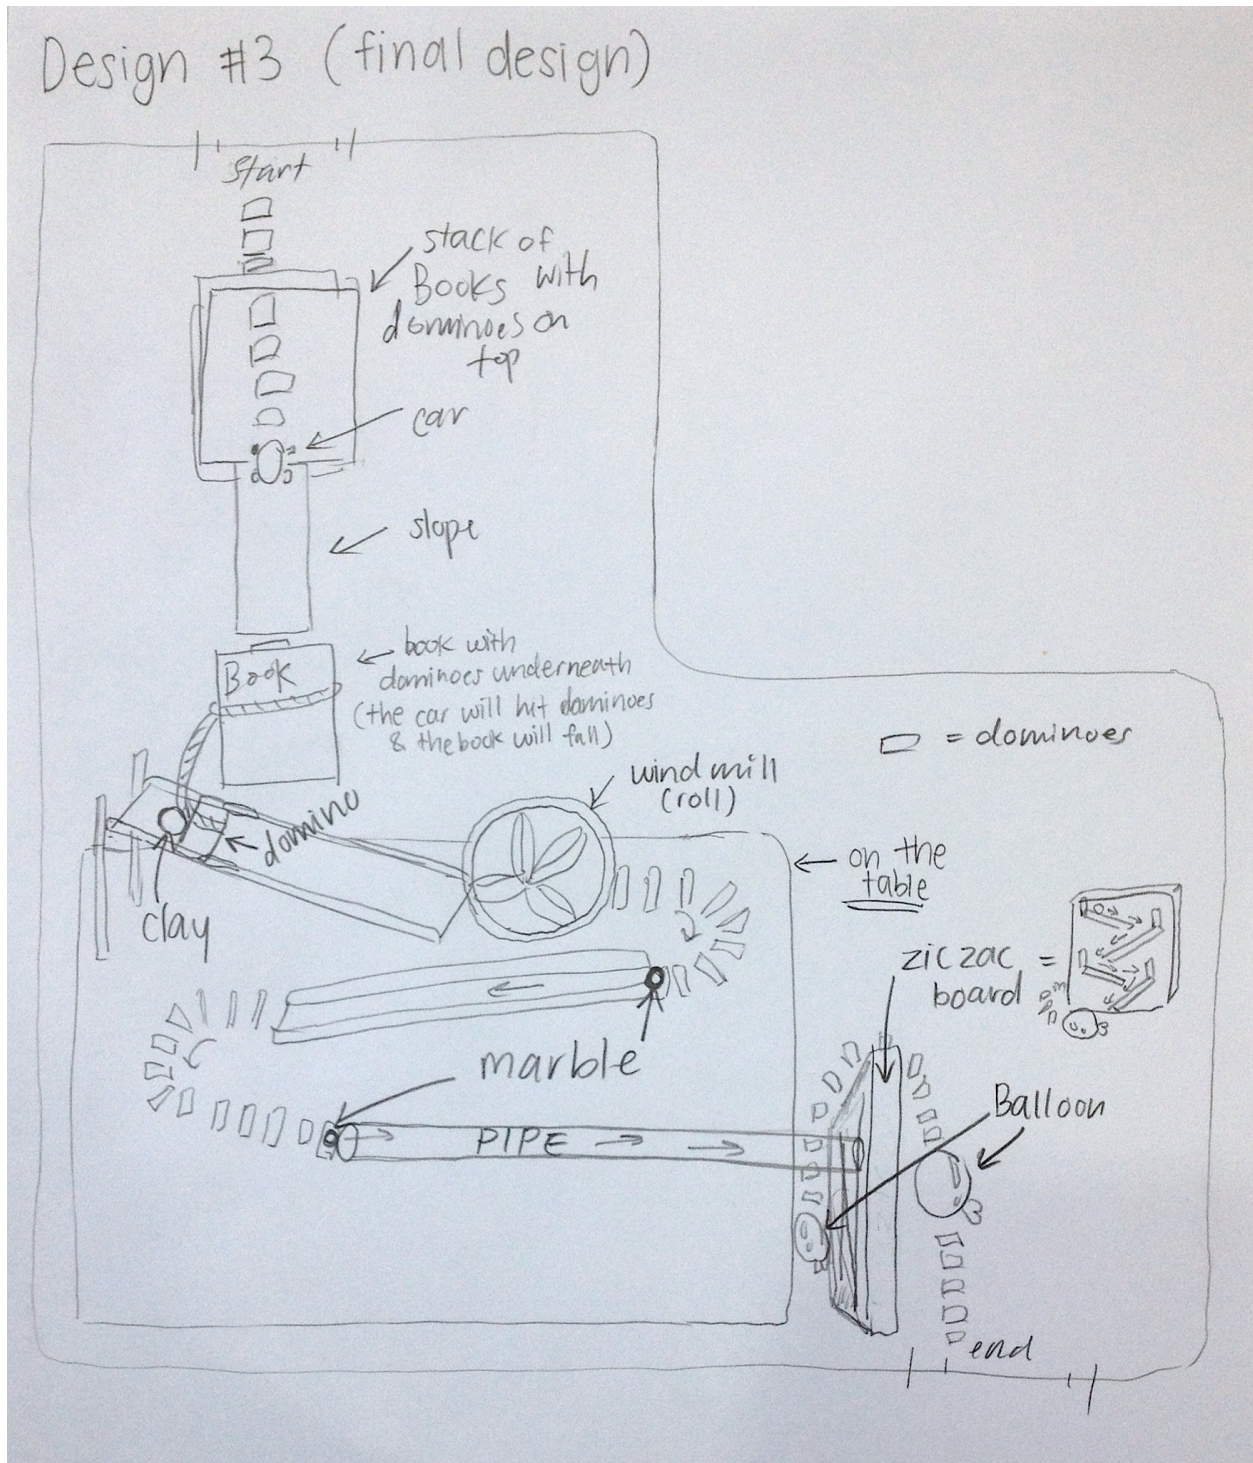 Design #3 (final design)
start
stack of
Books with
dominoes on
top
car
slope
book with
dominoes underneath
(the car will hit dominoes
& the book will fall)
Book
= dominoes
windmill
(roll)
domino
on the
table
clay
ziczac =
board
marble
Balloon
PIPE
end